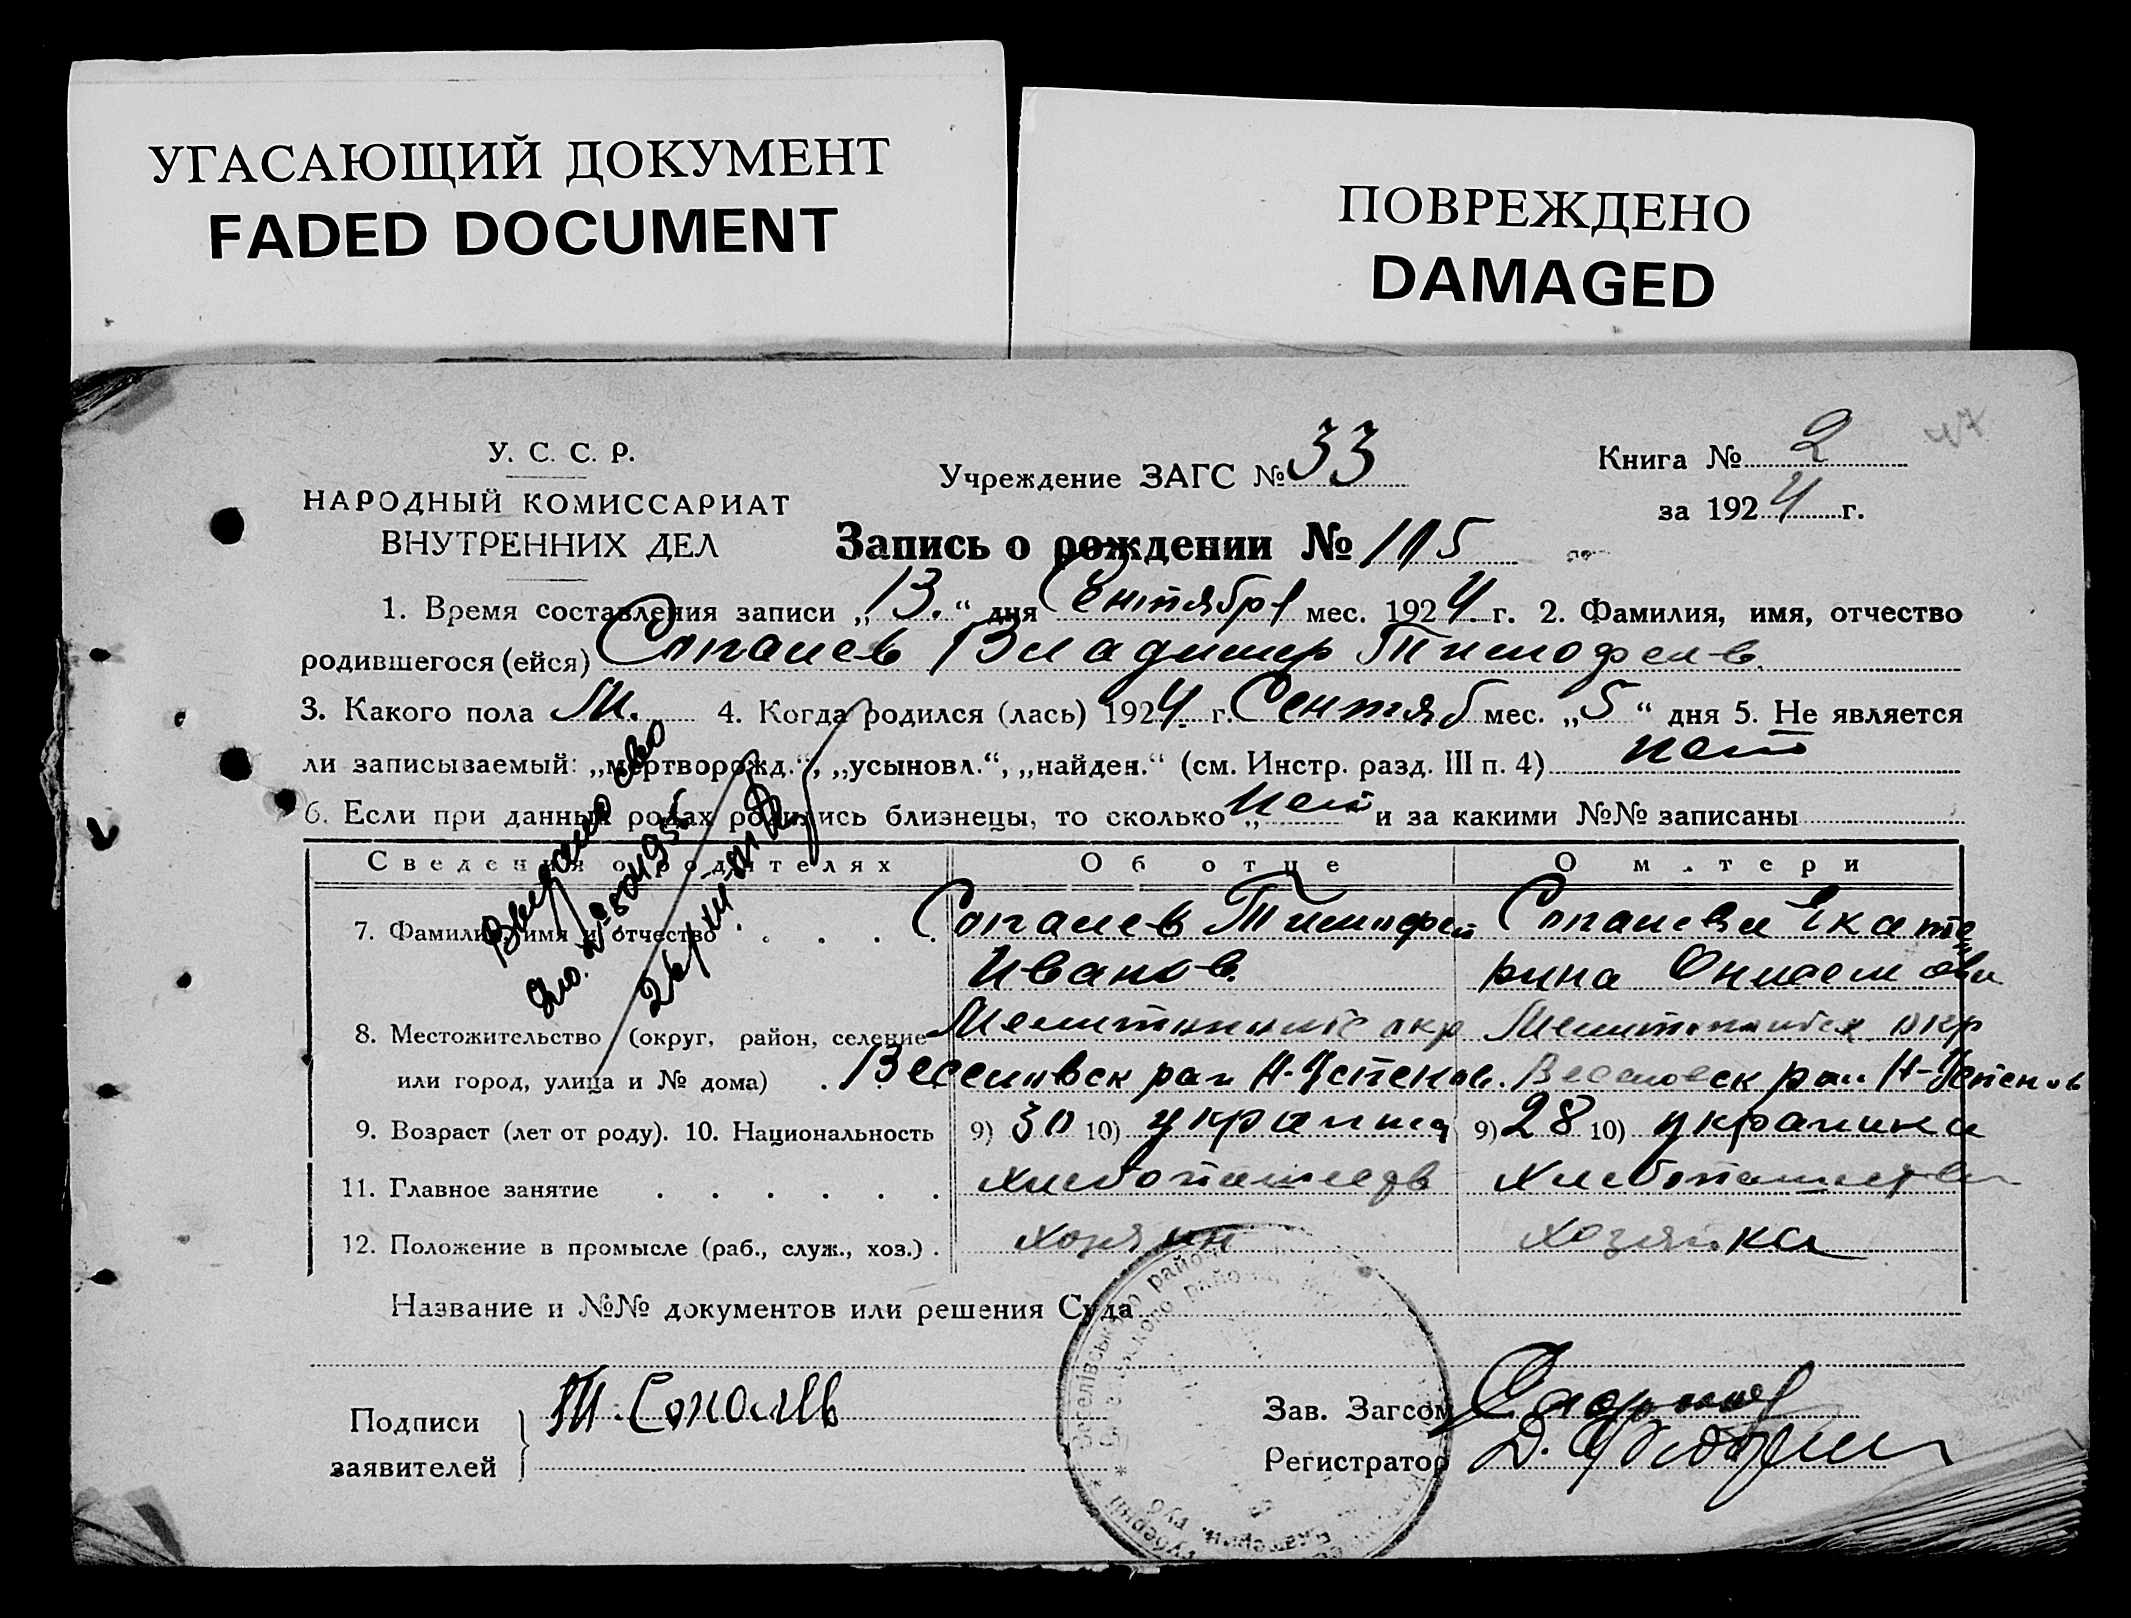 УГАСАЮЩИЙ ДОКУМЕНТ
FADED DOCUMENT
ПОВРЕЖДЕНО
DAMAGED
47
У. С. С. Р.
НАРОДНЫЙ КОМИССАРИАТ
ВНУТРЕННИХ ДЕЛ
Учреждение ЗАГС № 33
Книга № 2
за 1924 г.
Запись о рождении № 115
1. Время составления записи „13.“ дня Сентября мес. 1924 г. 2. Фамилия, имя, отчество
родившегося (ейся) Сопалев Владимир Тимофеев.
3. Какого пола М. 4. Когда родился (лась) 1924 г. Сентяб мес. „5“ дня 5. Не является
ли записываемый: „мертворожд.“, „усыновл.“, „найден.“ (см. Инстр. разд. III п. 4) нет
6. Если при данных родах родились близнецы, то сколько „нет и за какими №№ записаны
Сведения о родителях
Об отце
О матери
7. Фамилия, имя и отчество . . . . Сопалев Тимофей Сопалева Екате
Иванов. рина Онисимова
8. Местожительство (округ, район, селение Мелитопольс окр Мелитопольск окр
или город, улица и № дома) . Веселовск рай Н-Успенов. Веселовск рай Н-Успенов
9. Возраст (лет от роду). 10. Национальность 9) 30 10) украинц 9) 28 10) украинка
11. Главное занятие . . . . . . Хлебопашеств Хлебопашества
12. Положение в промысле (раб., служ., хоз.) . хозяин хозяйка
Название и №№ документов или решения Суда
Подписи
заявителей
Т. Сопалев
Зав. Загсом
Регистратор
Выдано сво